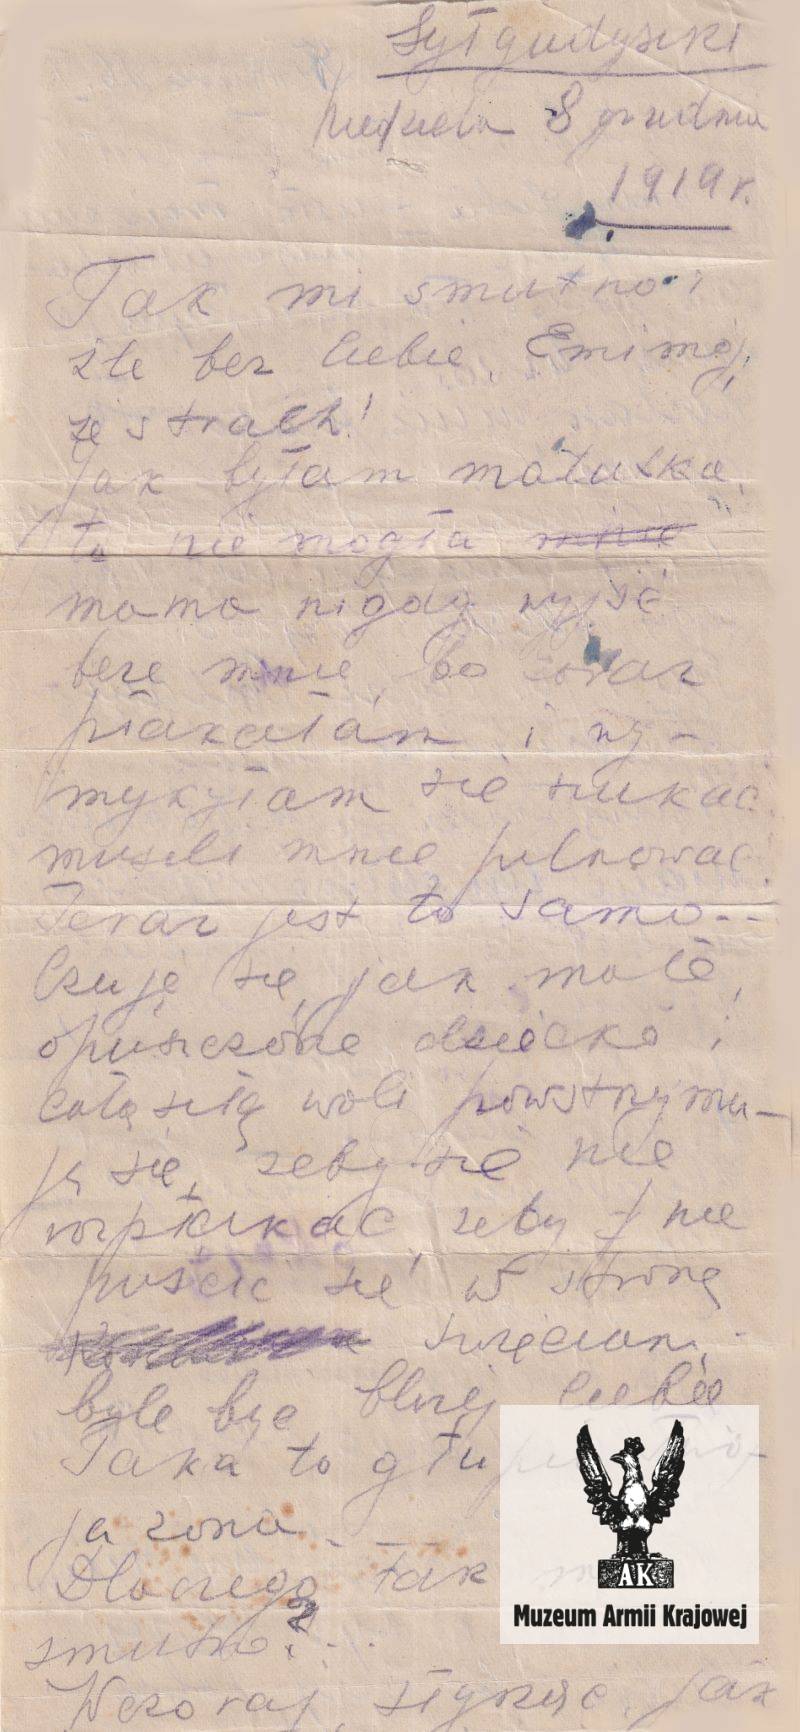 Łyłgudyszki
Niedziela 8 grudnia
1919 r.
Tak mi smutno i
źle bez Ciebie, Emi mój,
że strach!
Jak byłam malutka,
to nie mogła mnie
mama nigdy wyjść
beze mnie, bo zaraz
płakałam i wy-
mykałam się szukać
musieli mnie pilnować.
Teraz jest to samo...
Czuję się, jak małe,
opuszczone dziecko i
całą siłą woli powstrzymu-
ję się, żeby się nie
rozpłakać, żeby nie
puścić się w stronę
Święcian,
byle być bliżej Ciebie
Taka to
ja żona...
Dlaczego tak
smutno?...
Wczoraj, słysząc, jak
AK
Muzeum Armii Krajowej